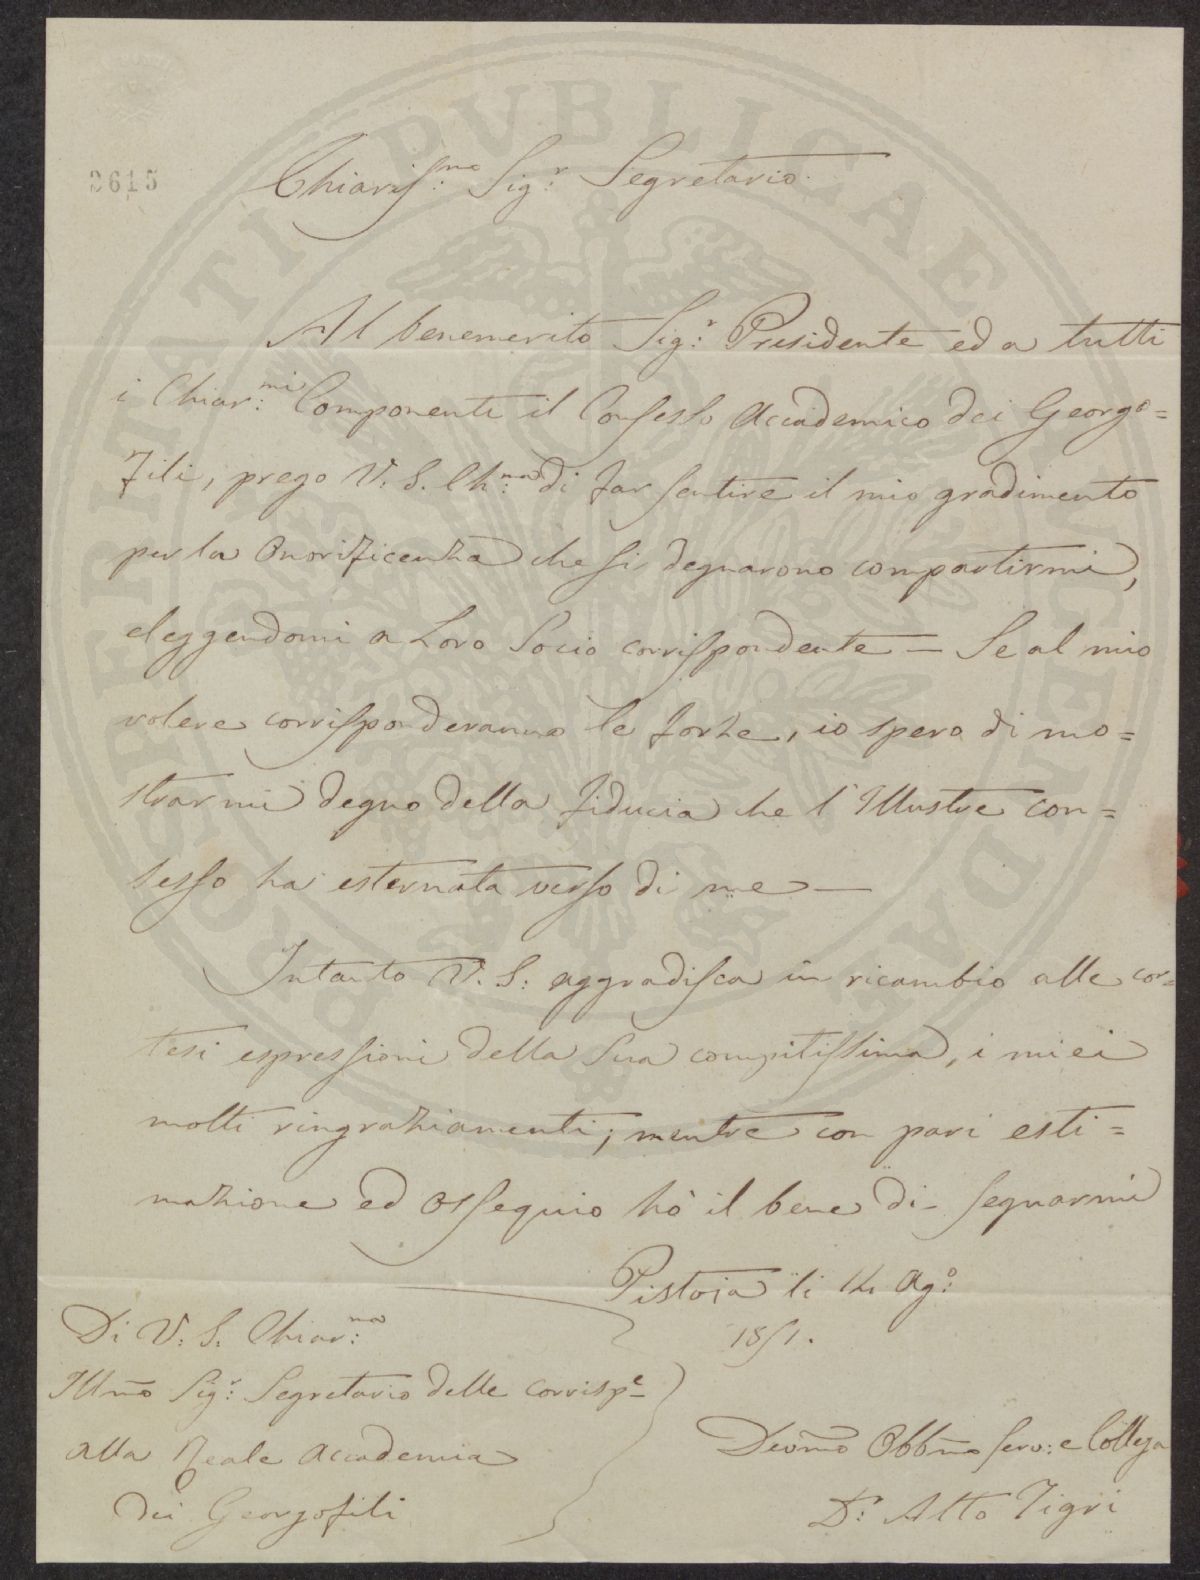 2615
Chiariss:mo Sig:r Segretario.
Al benemerito Sig:r Presidente ed a tutti
i Chiar:mi Componenti il Consesso Accademico dei Georgo=
fili, prego V. S. Ch:ma di far sentire il mio gradimento
per la Onorificenza che si degnarono compartirmi,
eleggendomi a Loro Socio corrispondente — Se al mio
volere corrisponderanno le forze, io spero di mo=
strarmi degno della fiducia che l'Illustre con=
sesso ha esternata verso di me —
Intanto V. S: aggradisca in ricambio alle cor=
tesi espressioni della Sua compitissima, i miei
molti ringraziamenti; mentre con pari esti=
mazione ed ossequio hò il bene di segnarmi
Pistoia li 14 Ag:o
1851.
Di V: S. Chiar:ma
Illmo Sig:r Segretario delle corrispe
alla Reale Accademia
dei Georgofili
Devmo Obbmo serv: e Collega
D:r Atto Tigri
PROSPERITATI PVBLICAE AVGENDAE